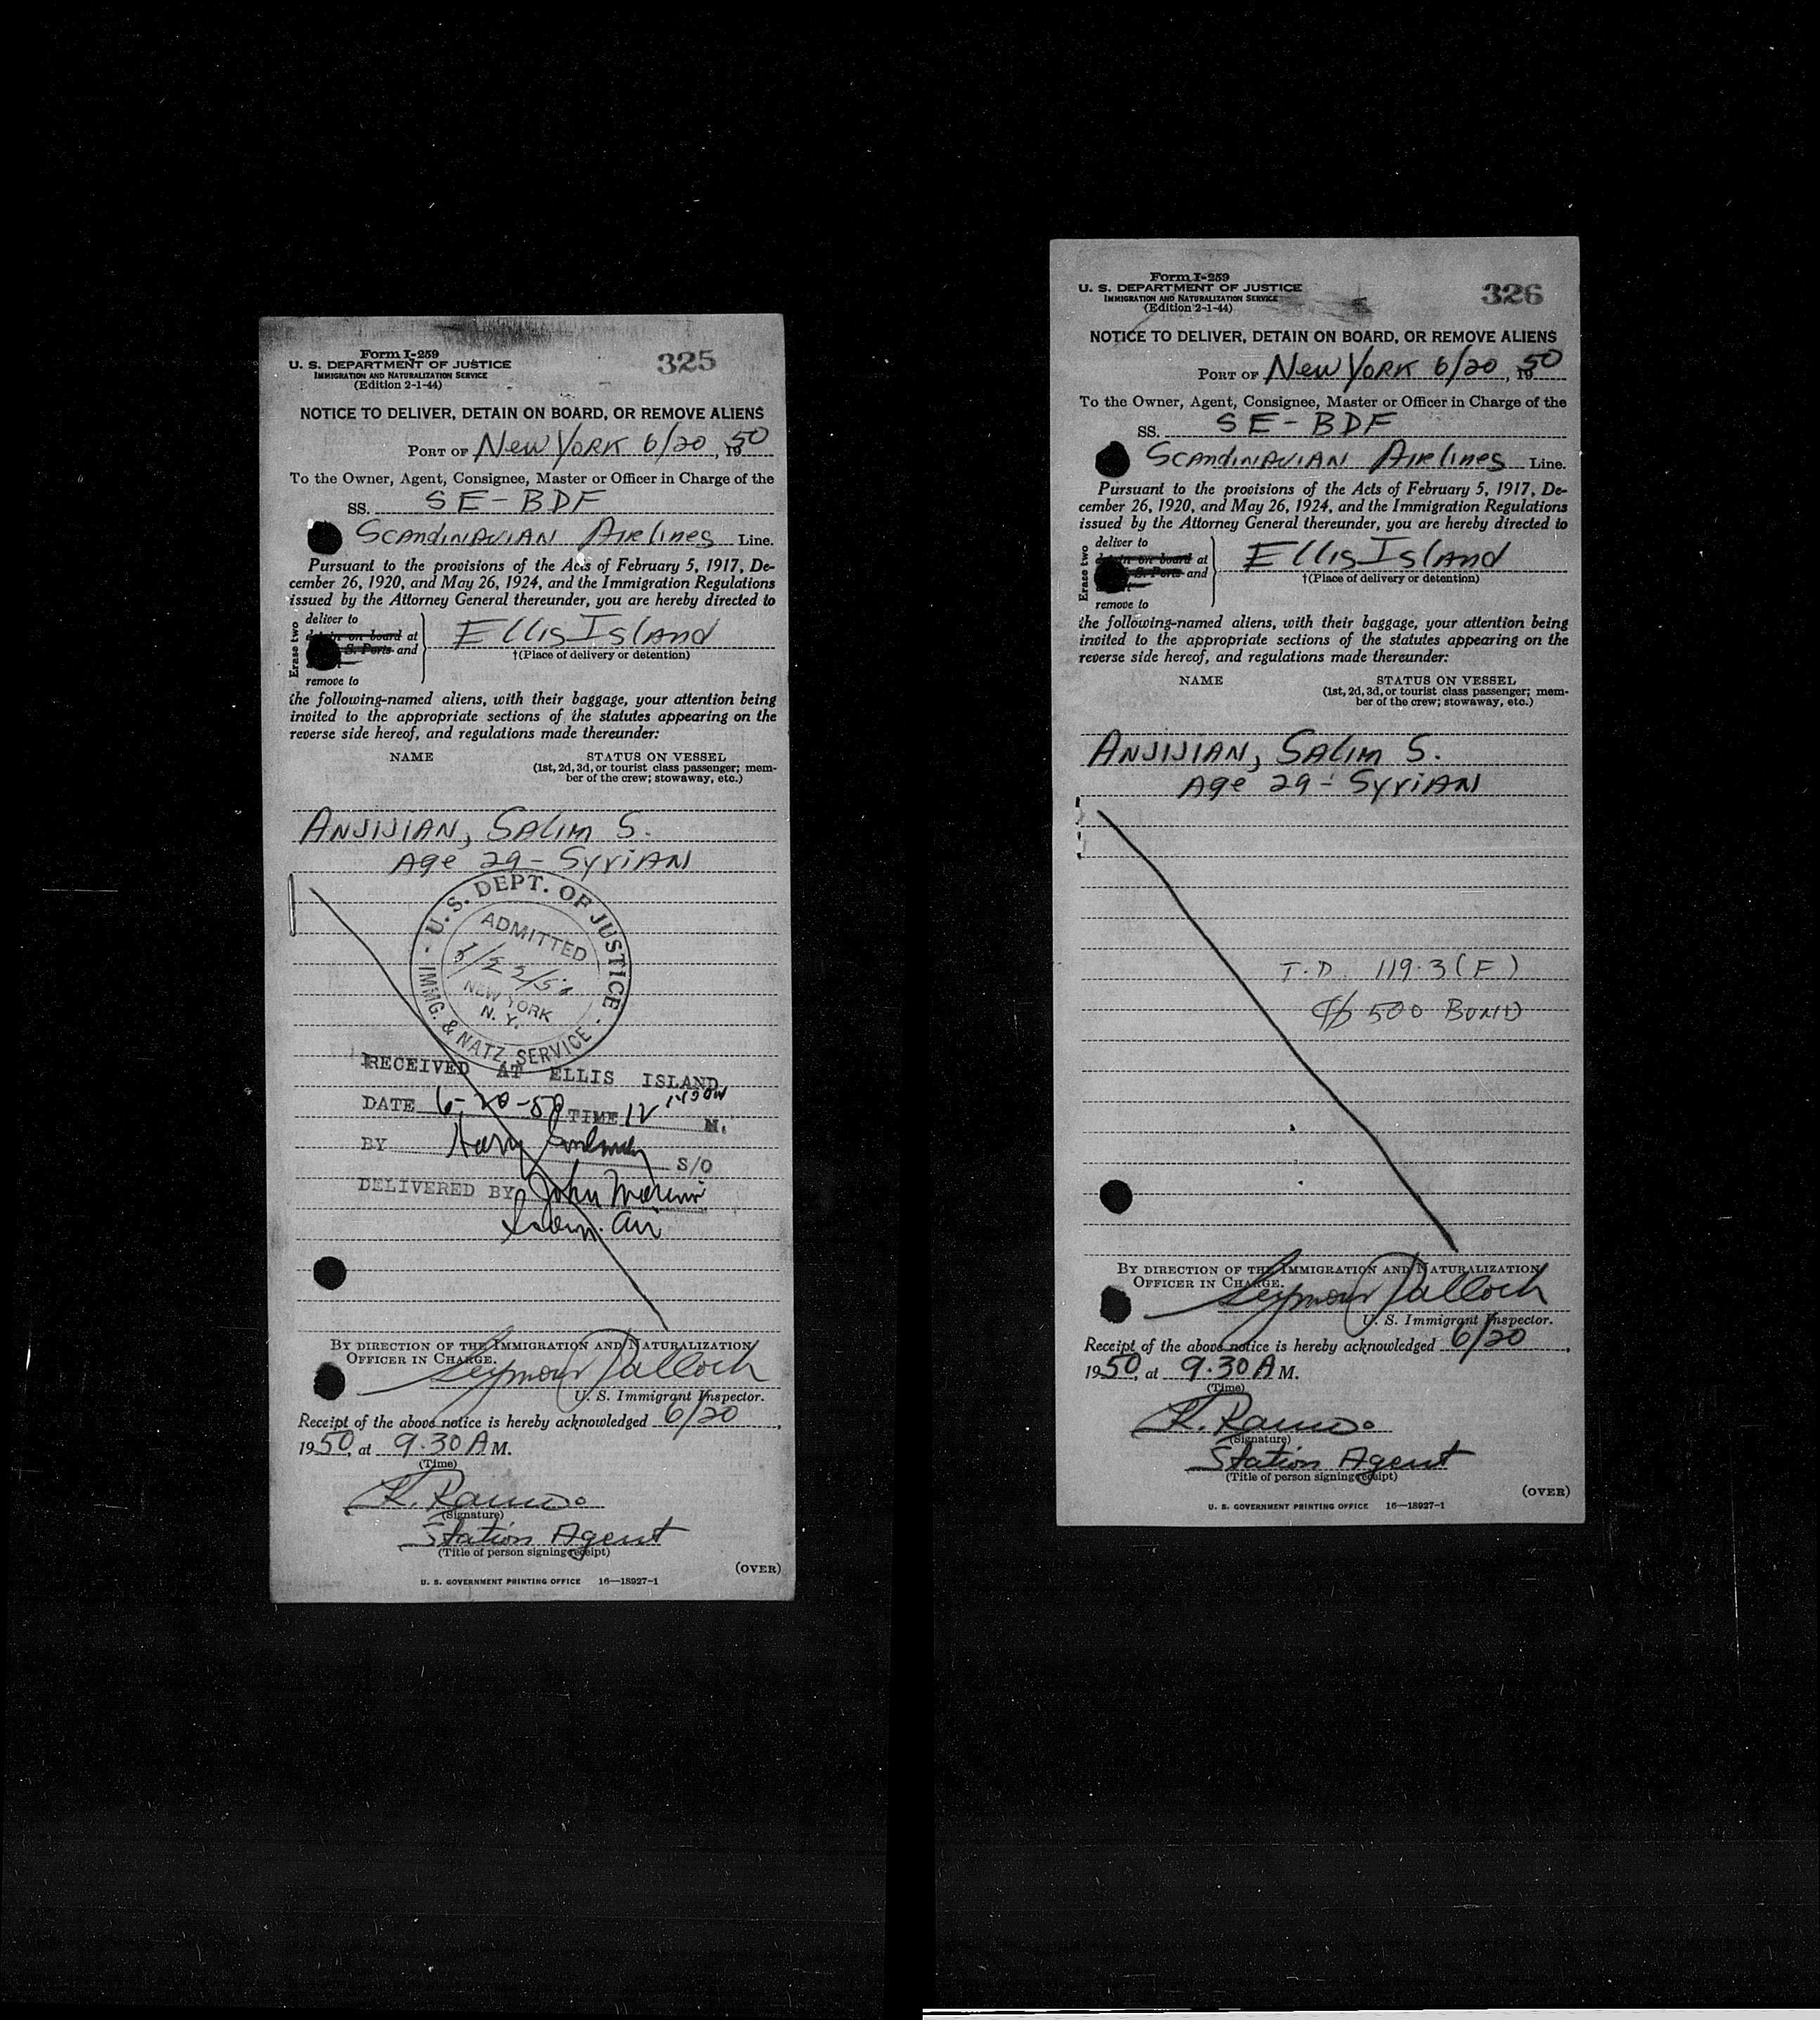 Form I-259
U. S. DEPARTMENT OF JUSTICE
IMMIGRATION AND NATURALIZATION SERVICE
(Edition 2-1-44)
325
NOTICE TO DELIVER, DETAIN ON BOARD, OR REMOVE ALIENS
PORT OF New York 6/20, 1950
To the Owner, Agent, Consignee, Master or Officer in Charge of the
SS. SE-BDF
Scandinavian Airlines Line.
Pursuant to the provisions of the Acts of February 5, 1917, De-
cember 26, 1920, and May 26, 1924, and the Immigration Regulations
issued by the Attorney General thereunder, you are hereby directed to
Erase two
deliver to
on board at
S. Ports and
remove to
Ellis Island
†(Place of delivery or detention)
the following-named aliens, with their baggage, your attention being
invited to the appropriate sections of the statutes appearing on the
reverse side hereof, and regulations made thereunder:
NAME STATUS ON VESSEL
(1st, 2d, 3d, or tourist class passenger; mem-
ber of the crew; stowaway, etc.)
ANJIJIAN, SALIM S.
Age 29 - SyriAN
U. S. DEPT. OF JUSTICE
ADMITTED
NEW YORK
N. Y.
IMMG. & NATZ. SERVICE
RECEIVED AT ELLIS ISLAND
DATE 6-20-50 TIME 12 noon M.
BY Harry S/O
DELIVERED BY John
Air
BY DIRECTION OF THE IMMIGRATION AND NATURALIZATION
OFFICER IN CHARGE.
Seymour
U. S. Immigrant Inspector.
Receipt of the above notice is hereby acknowledged 6/20,
1950, at 9.30 A M.
(Time)
(Signature)
Station Agent
(Title of person signing receipt)
(OVER)
U. S. GOVERNMENT PRINTING OFFICE 16—18927-1
Form I-259
U. S. DEPARTMENT OF JUSTICE
IMMIGRATION AND NATURALIZATION SERVICE
(Edition 2-1-44)
326
NOTICE TO DELIVER, DETAIN ON BOARD, OR REMOVE ALIENS
PORT OF New York 6/20, 1950
To the Owner, Agent, Consignee, Master or Officer in Charge of the
SS. SE-BDF
Scandinavian Airlines Line.
Pursuant to the provisions of the Acts of February 5, 1917, De-
cember 26, 1920, and May 26, 1924, and the Immigration Regulations
issued by the Attorney General thereunder, you are hereby directed to
Erase two
deliver to
on board at
S. Ports and
remove to
Ellis Island
†(Place of delivery or detention)
the following-named aliens, with their baggage, your attention being
invited to the appropriate sections of the statutes appearing on the
reverse side hereof, and regulations made thereunder:
NAME STATUS ON VESSEL
(1st, 2d, 3d, or tourist class passenger; mem-
ber of the crew; stowaway, etc.)
ANJIJIAN, SALIM S.
Age 29 - SyriAN
T.D. 119.3(F)
$500 BOND
BY DIRECTION OF THE IMMIGRATION AND NATURALIZATION
OFFICER IN CHARGE.
Seymour
U. S. Immigrant Inspector.
Receipt of the above notice is hereby acknowledged 6/20,
1950, at 9.30 A M.
(Time)
(Signature)
Station Agent
(Title of person signing receipt)
(OVER)
U. S. GOVERNMENT PRINTING OFFICE 16—18927-1